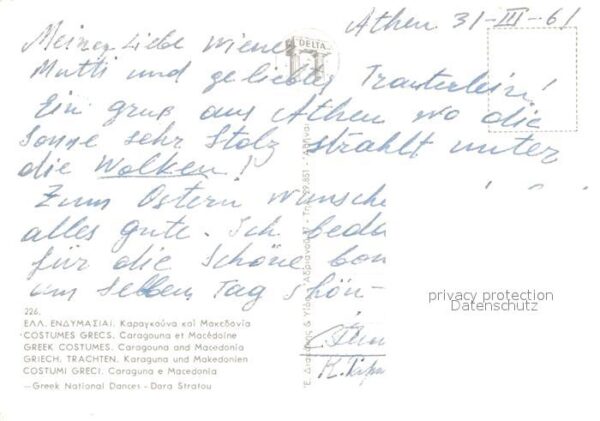 Athen 31-III-61
Meiner Liebe Wiener
Mutti und geliebtes Trauterlein!
Ein gruß aus Athen wo die
Sonne sehr Stolz strahlt unter
die Wolken!
Zum Ostern wünsche
alles gute. Ich beda
für die Schöne bon
am selben Tag schön-
DELTA
privacy protection
Datenschutz
226.
ΕΛΛ. ΕΝΔΥΜΑΣΙΑΙ. Καραγκούνα καί Μακεδονία
COSTUMES GRECS. Caragouna et Macédoine
GREEK COSTUMES. Caragouna and Macedonia
GRIECH. TRACHTEN. Karaguna und Makedonien
COSTUMI GRECI. Caraguna e Macedonia
—Greek National Dances - Dora Stratou